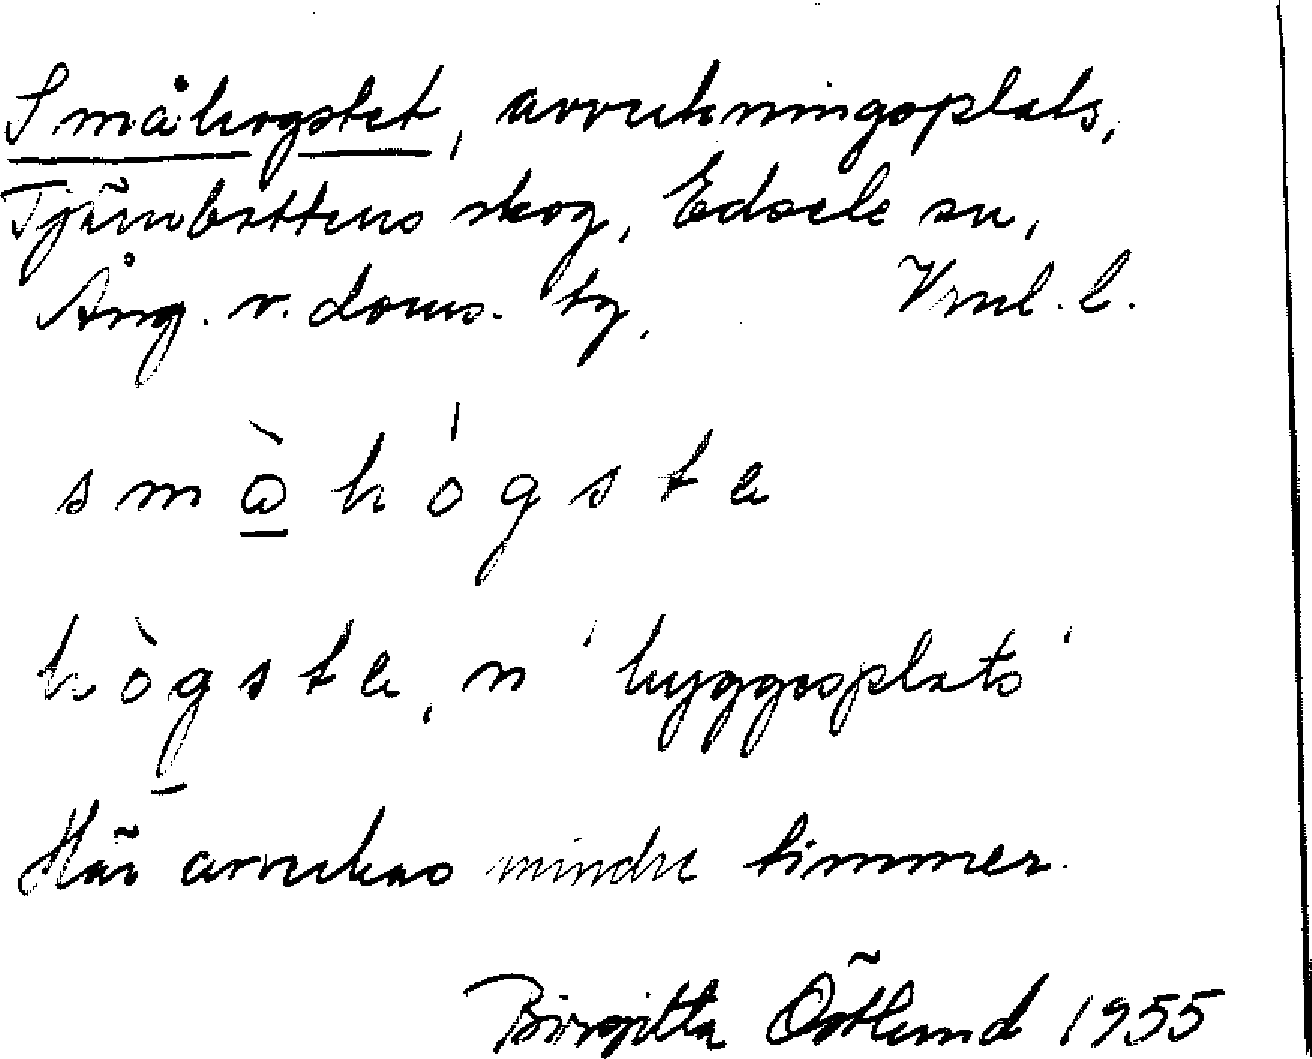 Småhogstet, avverkningsplats,
Tjärnbottens skog, Edsele sn,
Ång. v. doms. tg. Vrml. l.
småhógste
hògste, n 'hyggesplats'
Här avverkas mindre timmer.
Birgitta Östlund 1955